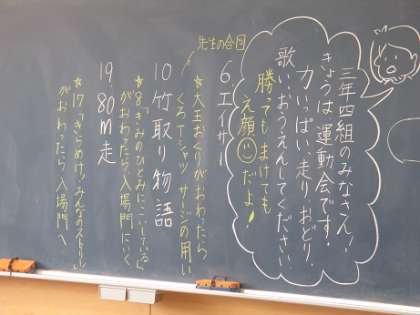 三年四組のみなさん!
きょうは運動会です。
力いっぱい走り、おどり、
歌い、おうえんしてください。
勝ってもまけても
え顔だよ!
先生の合図
6.エイサー
★大玉おくりがおわったら
くろTシャツ サージの用い
10竹取り物語
がおわったら入場門にいく
19.80m走
がおわったら入場門へ